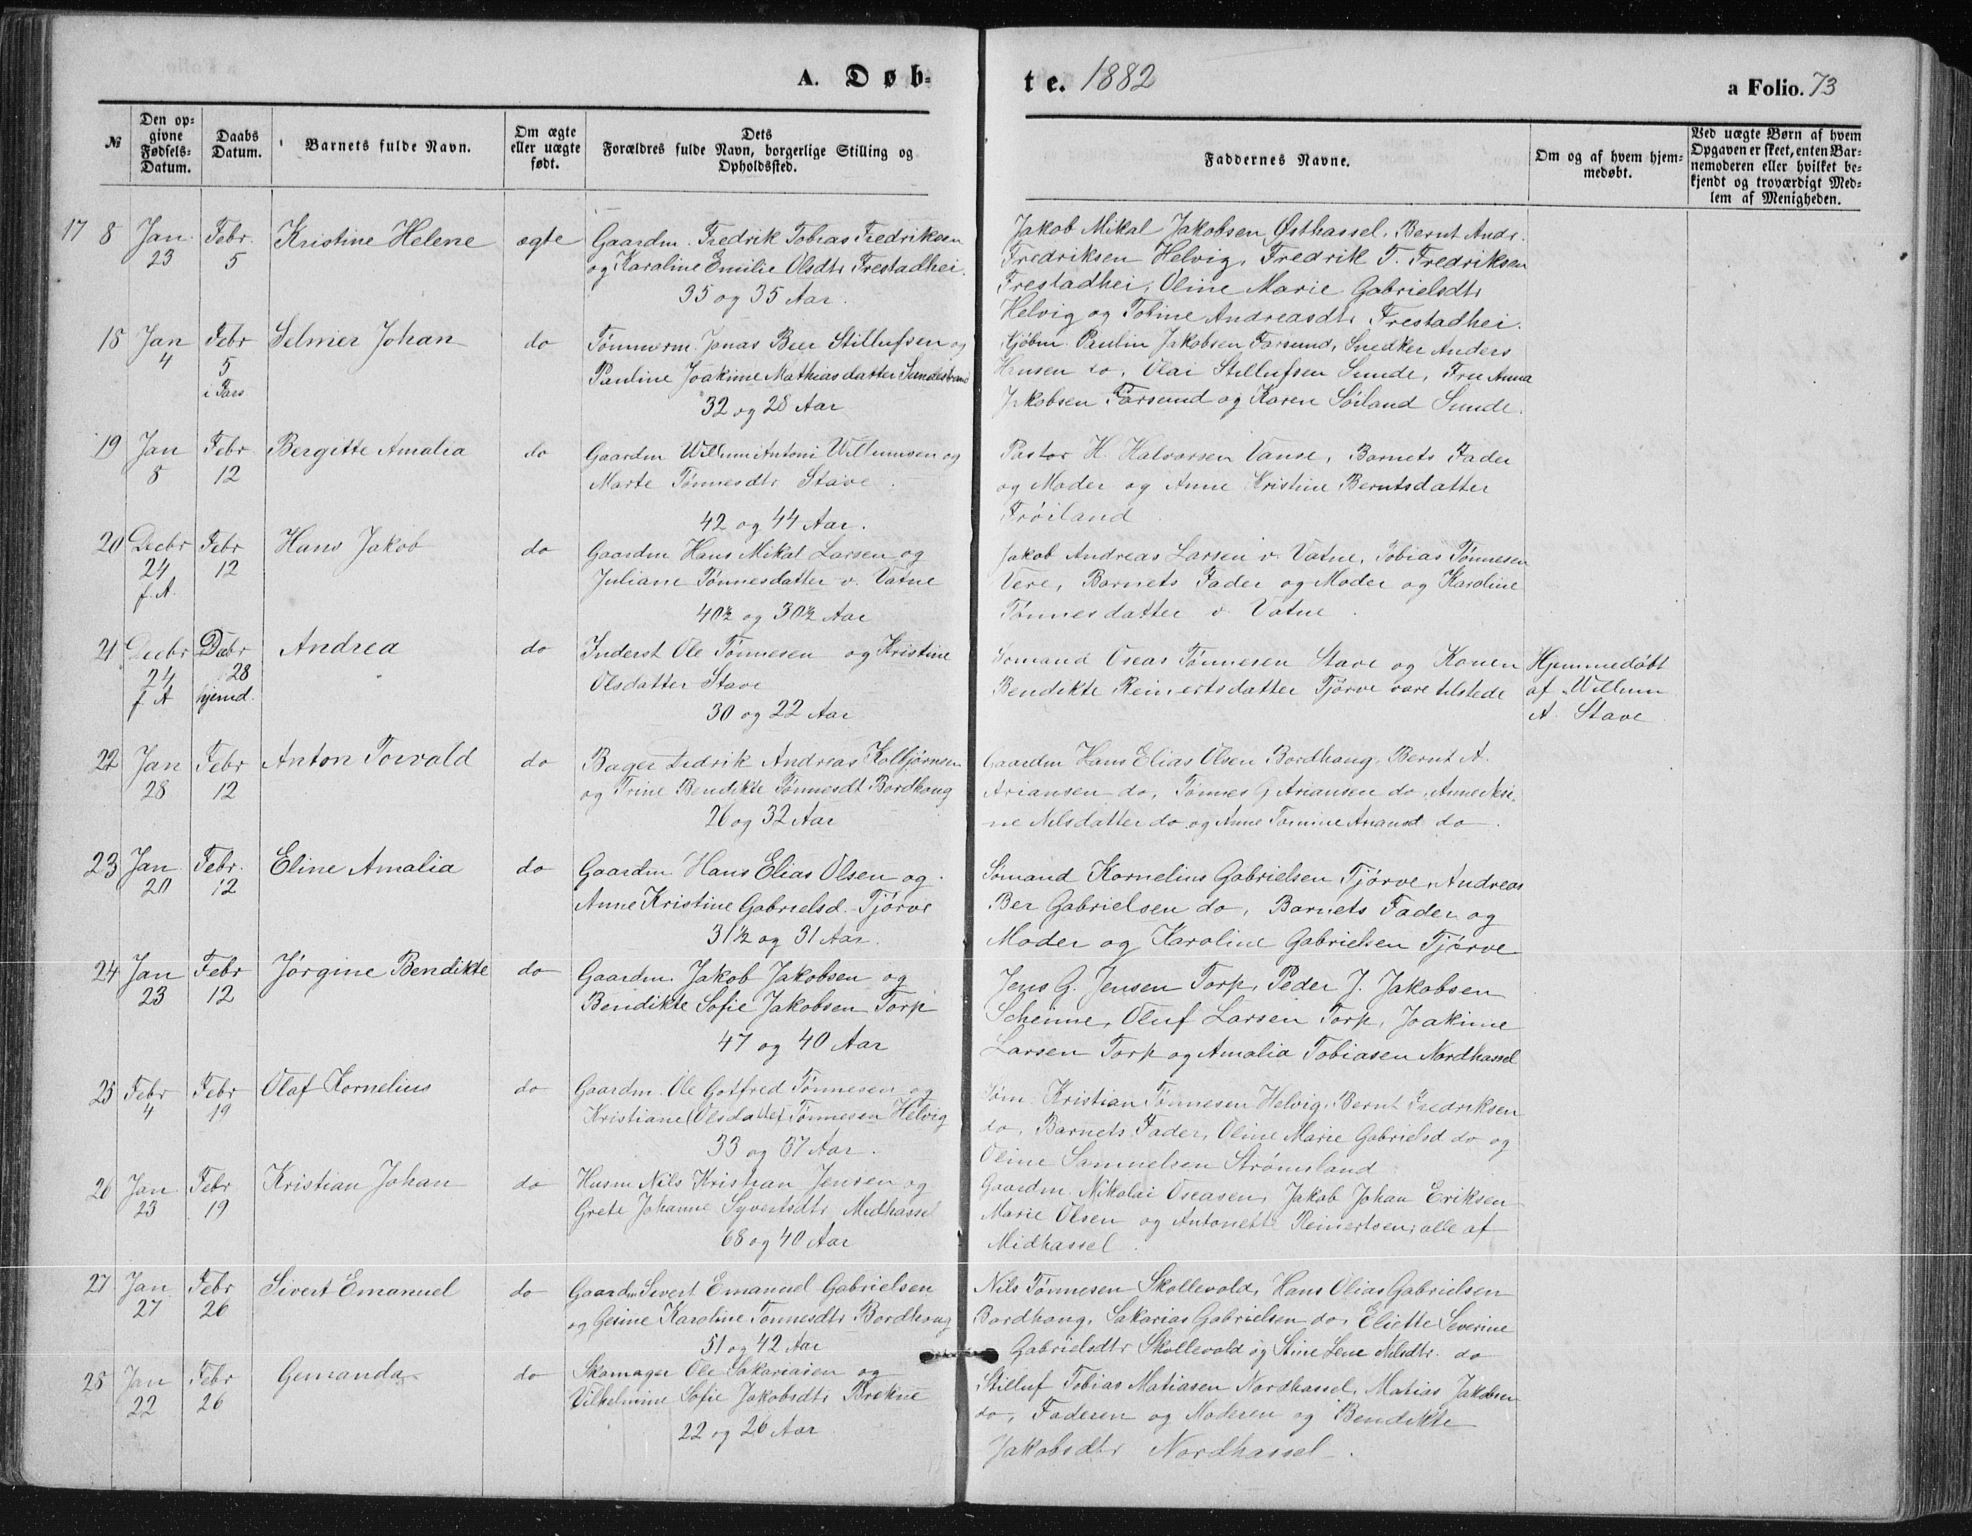 A. Døb-
te. 1882
a Folio. 73
№
Den op-
givne
Fødsels-
Datum.
Daabs
Datum.
Barnets fulde Navn.
Om ægte
eller uægte
født.
Dets
Forældres fulde Navn, borgerlige Stilling og
Opholdssted.
Faddernes Navne.
Om og af hvem hjem-
medøbt.
Ved uægte Børn af hvem
Opgaven er skeet, enten Bar-
nemoderen eller hvilket be-
kjendt og troværdigt Med-
lem af Menigheden.
17 8 Jan. Febr. Kristine Helene ægte Gaardm. Fredrik Tobias Fredriksen
23 5 og Karoline Emilie Olsdtr Frestadhei.
35 og 35 Aar.
Jakob Mikal Jakobsen Østhassel, Bernt Andr.
Fredriksen Helvig, Fredrik T. Fredriksen
Frestadhei, Oline Marie Gabrielsdtr
Helvig og Tobine Andreasdtr Frestadhei.
18 Jan Febr Selmer Johan do Tømmerm. Jonas Beer Stillufsen og
4 5 Pauline Joakime Mathiasdatter Sundestrand
i Fars 32 og 28 Aar
Kjøbm. Paulin Jakobsen Farsund, Snedker Anders
Hansen do, Olai Stillufsen Sunde, Fru Anna
Jakobsen Farsund og Karen Søiland Sunde.
19 Jan Febr. Bergitte Amalia do Gaardm Willum Antoni Willumsen og
8 12 Marte Tønnesdtr Stave.
42 og 44 Aar.
Pastor H. Halvorsen Vanse, Barnets Fader
og Moder og Anne Kristine Berntsdatter
Frøiland
20 Decbr Febr Hans Jakob do Gaardm Hans Mikal Larsen og
24 12 Juliane Tønnesdatter v. Vatne
f. A. 40½ og 30½ Aar
Jakob Andreas Larsen v. Vatne, Tobias Tønnesen
Vere, Barnets Fader og Moder og Karoline
Tønnesdatter v. Vatne.
21 Decbr Decbr Andrea do Inderst Ole Tønnesen og Kristine
24 28 Olsdatter Stave
f. A hjemd. 30 og 22 Aar
Sømand Oseas Tønnesen Stave og Konen
Bendikte Reinertsdatter Tjørve vare tilstede
Hjemmedøbt
af Willum
A. Stave
22 Jan Febr Anton Torvald do Bager Fredrik Andreas Kolbjørnsen
28 12 og Trine Bendikte Tønnesdt Bordhoug
26 og 32 Aar
Gaardm Hans Elias Olsen Bordhoug, Bernt A.
Ariansen do, Tønnes G Ariansen do, Anne
ne Nilsdatter do og Anne Tomine Ariansd do.
23 Jan Febr. Eline Amalia do Gaardm. Hans Elias Olsen og
20 12 Anne Kristine Gabrielsd. Tjørve
31½ og 31 Aar.
Sømand Kornelius Gabrielsen Tjørve, Andreas
Ber Gabrielsen do, Barnets Fader og
Moder og Karoline Gabrielsen Tjørve
24 Jan Febr Jørgine Bendikte do Gaardm. Jakob Jakobsen og
23 12 Bendikte Sofie Jakobsen Torp
47 og 40 Aar
Jens G. Jensen Torp, Peder J. Jakobsen
Oluf Larsen Torp, Joakime
Larsen Torp og Amalia Tobiasen Nordhassel
25 Febr Febr Olaf Kornelius do Gaardm. Ole Gotfred Tønnesen og
4 19 Kristiane Olsdatter Tønnesen Helvig
33 og 37 Aar.
Tøm. Kristian Tønnesen Helvig, Bernt Fredriksen
do, Barnets Fader, Oline Marie Gabrielsd do og
Oline Samuelsen Strømsland
26 Jan Febr Kristian Johan do Husm Nils Kristian Jensen og
23 19 Grete Johanne Syvertsdtr Midhassel
68 og 40 Aar
Gaardm. Nikolai Oseasen, Jakob Johan Eriksen
Marie Olsen og Antonette Reinertsen, alle af
Midhassel.
27 Jan Febr Sivert Emanuel do Gaardm Sivert Emanuel Gabrielsen
27 26 og Gesine Karoline Tønnesdtr Bordhoug
51 og 42 Aar
Nils Tønnesen Skollevold, Hans Olias Gabrielsen
Bordhoug, Sakarias Gabrielsen do, Eliette Severine
Gabrielsdtr Skollevold og Stine Lene Nilsdtr. do
28 Jan Febr Gemanda do Skomager Ole Sakariasen og
22 26 Vilhelmine Sofie Jakobsdtr Brekne
22 og 26 Aar
Stilluf Tobias Matiasen Nordhassel, Matias Jakobsen
do, Faderen og Moderen og Bendikte
Jakobsdtr Nordhassel.